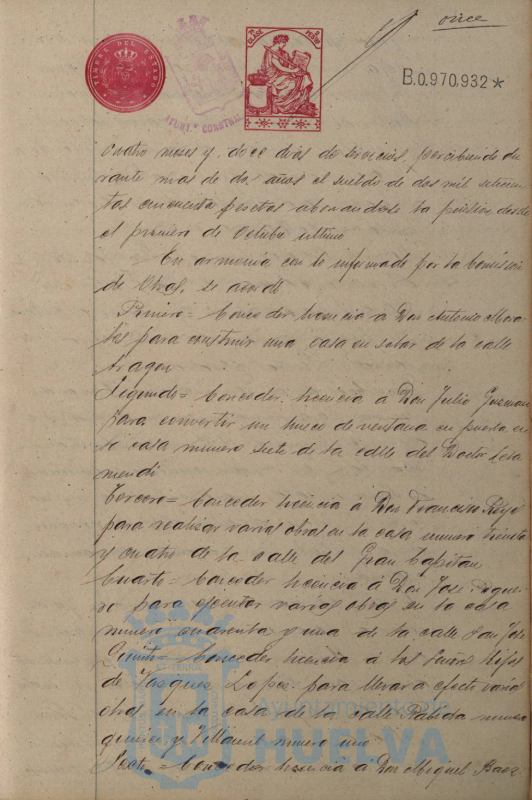 once
TIMBRE DEL ESTADO
AYUNT.º CONSTITU
7ª CLASE
B.0.970.932*
cuatro meses y doce dias de servicios, percibiendo du
rante mas de dos años el sueldo de dos mil setecien
tas cincuenta pesetas abonandose la pension desde
el primero de Octubre ultimo
En armonia con lo informado por la Comision
de Obras, se acordó
Primero = Conceder licencia á Don Antonio Mora
les para construir una casa en solar de la calle
Aragon
Segundo = Conceder licencia á Don Julio Guzman
para convertir un hueco de ventana en puerta en
la casa numero siete de la calle del Doctor Leta
mendi
Tercero = Conceder licencia á Don Francisco Reyes
para realizar varias obras en la casa numero treinta
y cuatro de la calle del Gran Capitan
Cuarto = Conceder licencia á Don Jose
para ejecutar varias obras en la casa
numero cuarenta y una de la calle San Jose
Quinto = Conceder licencia á los Señores Hijos
de Vasquez Lopez para llevar á efecto varias
obras en la casa de la calle Rabida numero
quince y Villamil numero uno
Sexto = Conceder licencia á Don Miguel Baez
Ayuntamiento de
HUELVA